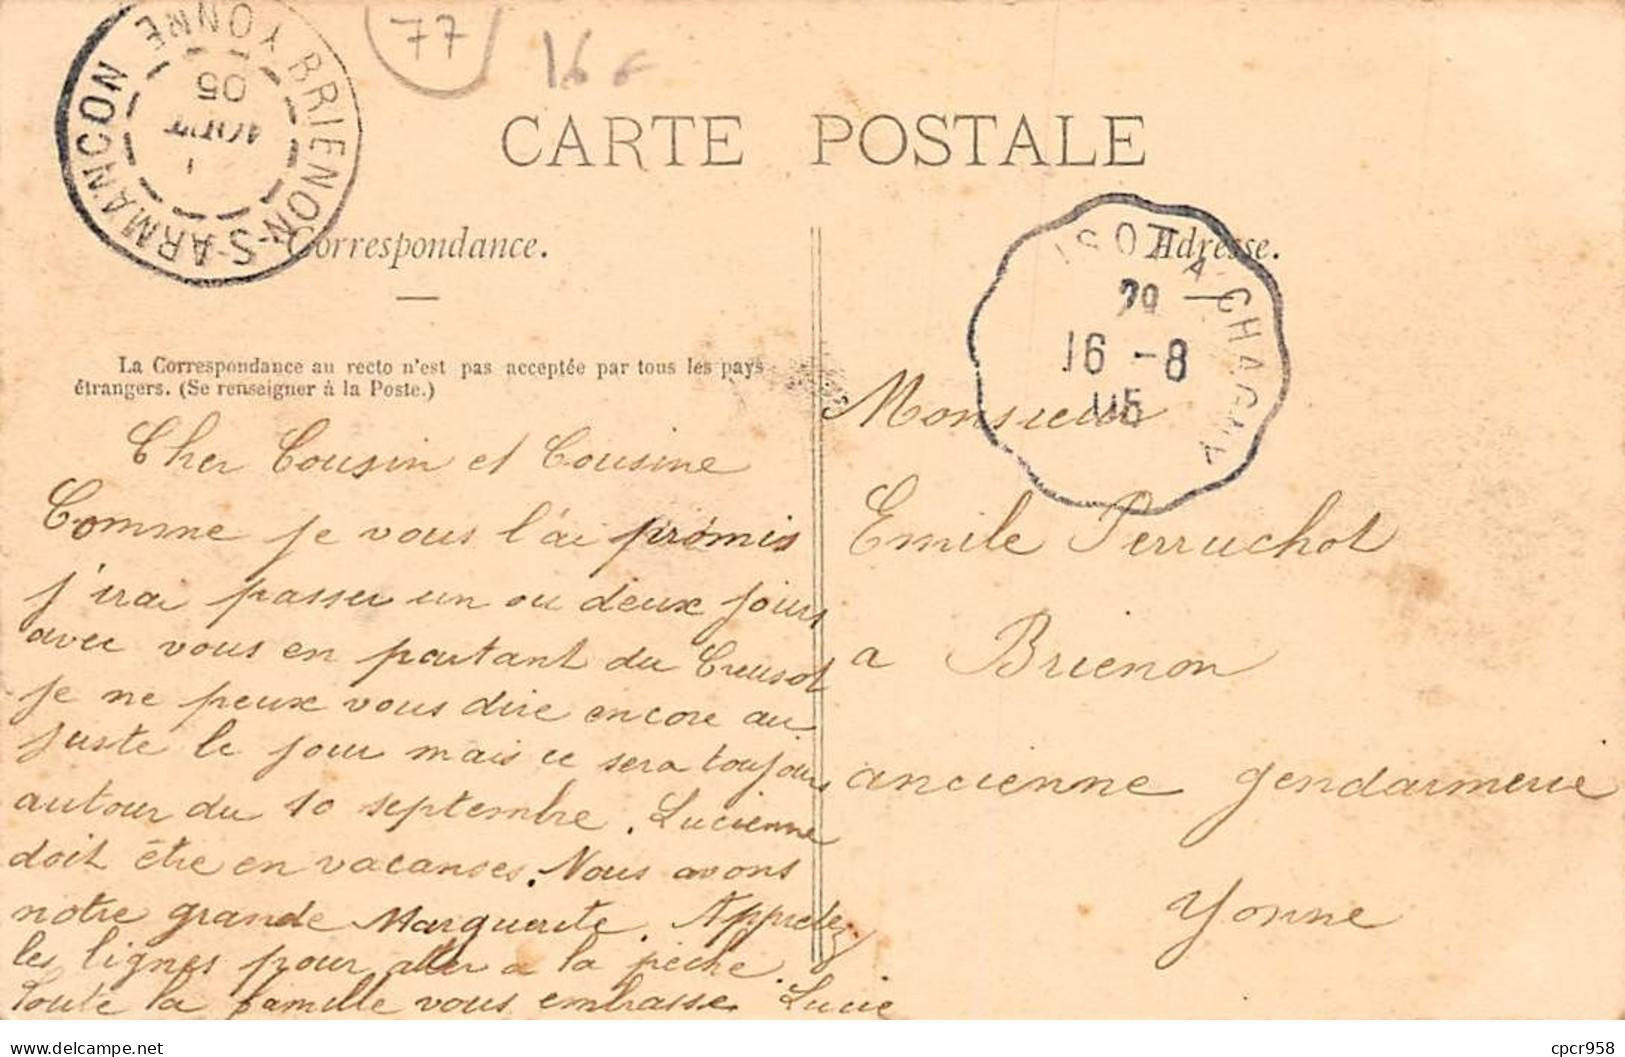 77
16
BRIENON-S-ARMANÇON YONNE
AOUT
05
CARTE POSTALE
Correspondance.
Adresse.
A CHAGNY
16 -8
05
La Correspondance au recto n'est pas acceptée par tous les pays
étrangers. (Se renseigner à la Poste.)
Cher Cousin et Cousine
Comme je vous l'ai promis
j'irai passer un ou deux jours
avec vous en partant du Creusot
je ne peux vous dire encore au
juste le jour mais ce sera toujours
autour du 10 septembre. Lucienne
doit être en vacances. Nous avons
notre grande Marguerite. Appretez
les lignes pour aller a la pèche.
Toute la famille vous embrasse. Lucie
Monsieur
Emile Perruchot
a Brienon
ancienne gendarmerie
Yonne
delcampe.net
cpcr958